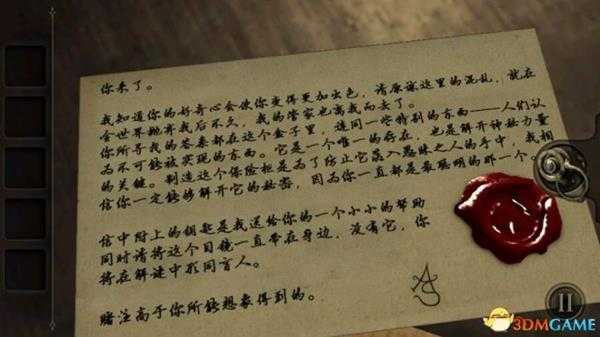 你来了。
我知道你的好奇心会使你变得更加出色，请原谅这里的混乱，就在
全世界抛弃我后不久，我的管家也离我而去了。
你所寻我的答案都在这个盒子里，连同一些特别的东西——人们认
为不可能被实现的东西。它是一个唯一的存在，也是解开神秘力量
的关键。制造这个保险柜是为了防止它落入愚昧之人的手中，我相
信你一定能够解开它的秘密，因为你一直都是最聪明的那一个。
信中附上的钥匙是我送给你的一个小小的帮助
同时请将这个目镜一直带在身边，没有它，你
将在解谜中形同盲人。
赌注高于你所能想象得到的。
AS
3DMGAME